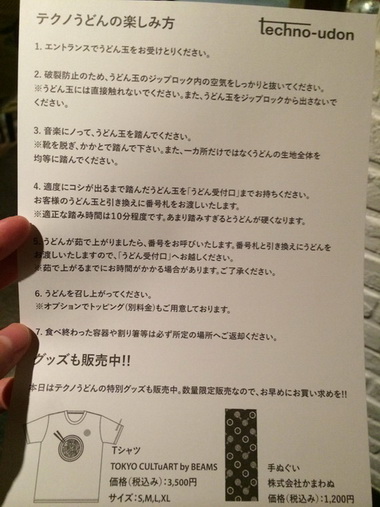 テクノうどんの楽しみ方
techno-udon
1. エントランスでうどん玉をお受けとりください。
2. 破裂防止のため、うどん玉のジップロック内の空気をしっかりと抜いてください。
※うどん玉には直接触れないでください。また、うどん玉をジップロックから出さないで
ください。
3. 音楽にノッて、うどん玉を踏んでください。
※靴を脱ぎ、かかとで踏んで下さい。また、一カ所だけではなくうどんの生地全体を
均等に踏んでください。
4. 適度にコシが出るまで踏んだうどん玉を「うどん受付口」までお持ちください。
お客様のうどん玉と引き換えに番号札をお渡しいたします。
※適正な踏み時間は10分程度です。あまり踏みすぎるとうどんが硬くなります。
5. うどんが茹で上がりましたら、番号をお呼びいたします。番号札と引き換えにうどんを
お渡しいたしますので、「うどん受付口」へお越しください。
※茹で上がるまでにお時間がかかる場合があります。ご了承ください。
6. うどんを召し上がってください。
※オプションでトッピング(別料金)もご用意しております。
7. 食べ終わった容器や割り箸等は必ず所定の場所へご返却ください。
グッズも販売中!!
本日はテクノうどんの特別グッズも販売中。数量限定販売なので、お早めにお買い求めを!!
Tシャツ
TOKYO CULTuART by BEAMS
価格(税込み):3,500円
サイズ:S,M,L,XL
手ぬぐい
株式会社かまわぬ
価格(税込み):1,200円